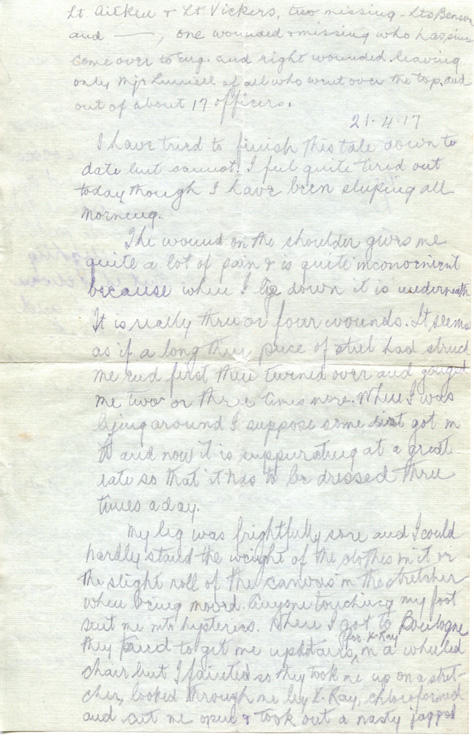 Lt Aitken & Lt Vickers, two missing - Lts Benson
and ——, one wounded & missing who has since
come over to Eng. and right wounded, leaving
only Mjr Lunnell of all who went over the top, and
out of about 17 officers.
21-4-17
I have tried to finish this tale down to
date but cannot. I feel quite tired out
today though I have been sleeping all
morning.
The wound on the shoulder gives me
quite a lot of pain & is quite inconvenient
because when I lie down it is underneath
It is really three or four wounds. It seems
as if a long thin piece of steel had struck
me end first then turned over and gouged
me two or three times more. When I was
lying around I suppose some dirt got in
it and now it is suppurating at a great
rate so that it has to be dressed three
times a day.
My leg was frightfully sore and I could
hardly stand the weight of the clothes on it or
the slight roll of the canvas in the stretcher
when being moved. Anyone touching my foot
sent me into hysterics. When I got to Boulogne
they tried to get me upstairs, (for X-Ray) in a wheeled
chair but I fainted so they took me up on a stret-
cher, looked through me by X-Ray, chloroformed
and cut me open & took out a nasty jagged